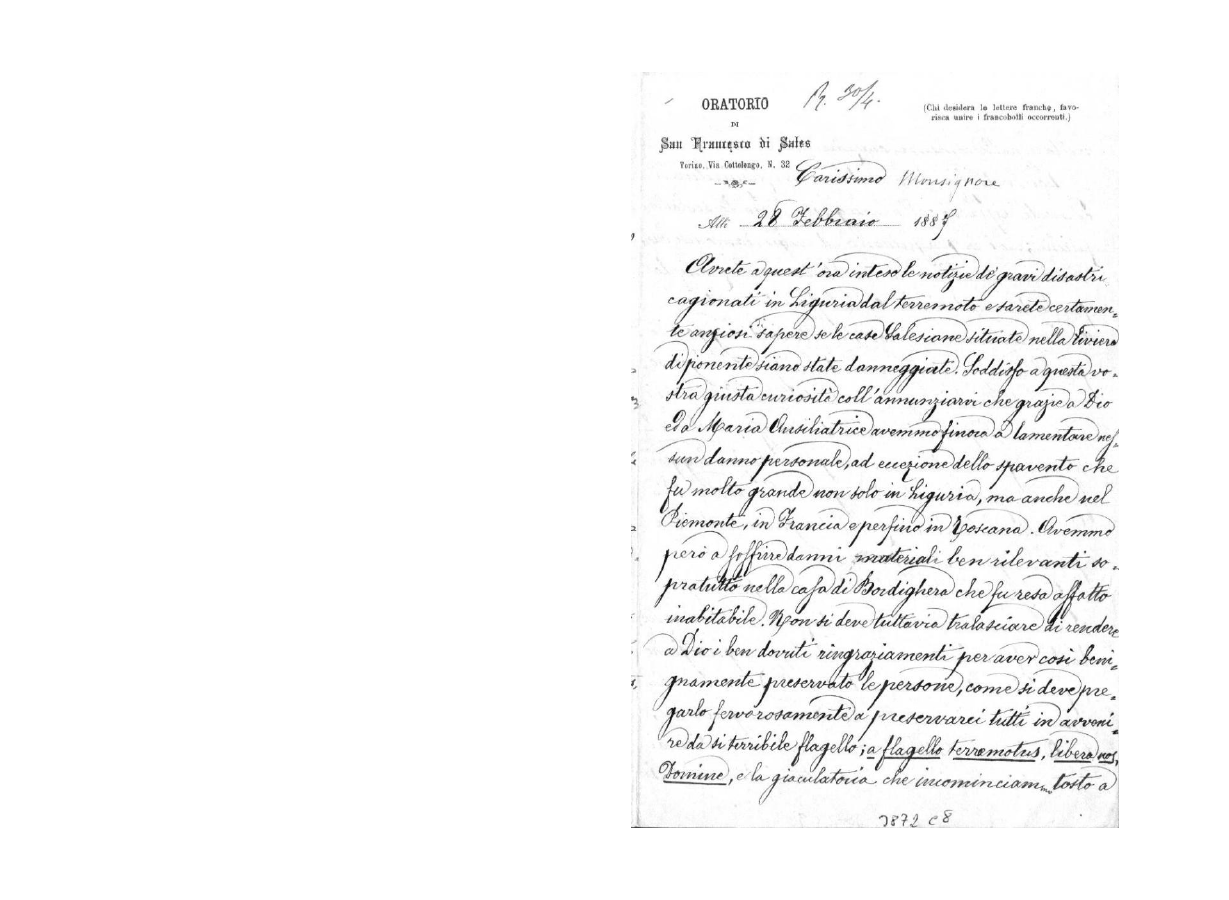 R. 30/4.
ORATORIO
DI
San Francesco di Sales
Torino, Via Cottolengo, N. 32
(Chi desidera la lettere franche, favo-
risca unire i francobolli occorrenti.)
Carissimo Monsignore
Alli 28 Febbraio 1887
Avrete a quest'ora inteso le notizie de' gravi disastri
cagionati in Liguria dal terremoto e sarete certamen-
te anziosi sapere se le case Salesiane situate nella riviera
di ponente siano state danneggiate. Soddisfo a questa vo-
stra giusta curiosità coll'annunziarvi che grazie a Dio
ed a Maria Ausiliatrice avemmo finora a lamentare nes-
sun danno personale, ad eccezione dello spavento che
fu molto grande non solo in Liguria, ma anche nel
Piemonte, in Francia e perfino in Toscana. Avemmo
però a soffrire danni materiali ben rilevanti so-
pratutto nella casa di Bordighera che fu resa affatto
inabitabile. Non si deve tuttavia tralasciare di rendere
a Dio i ben dovuti ringraziamenti per aver così beni-
gnamente preservato le persone, come si deve pre-
garlo fervorosamente a preservarci tutti in avveni-
re da si terribile flagello; a flagello terremotus, libera nos,
Domine, e la giaculatoria che incominciammo tosto a
3872 C8